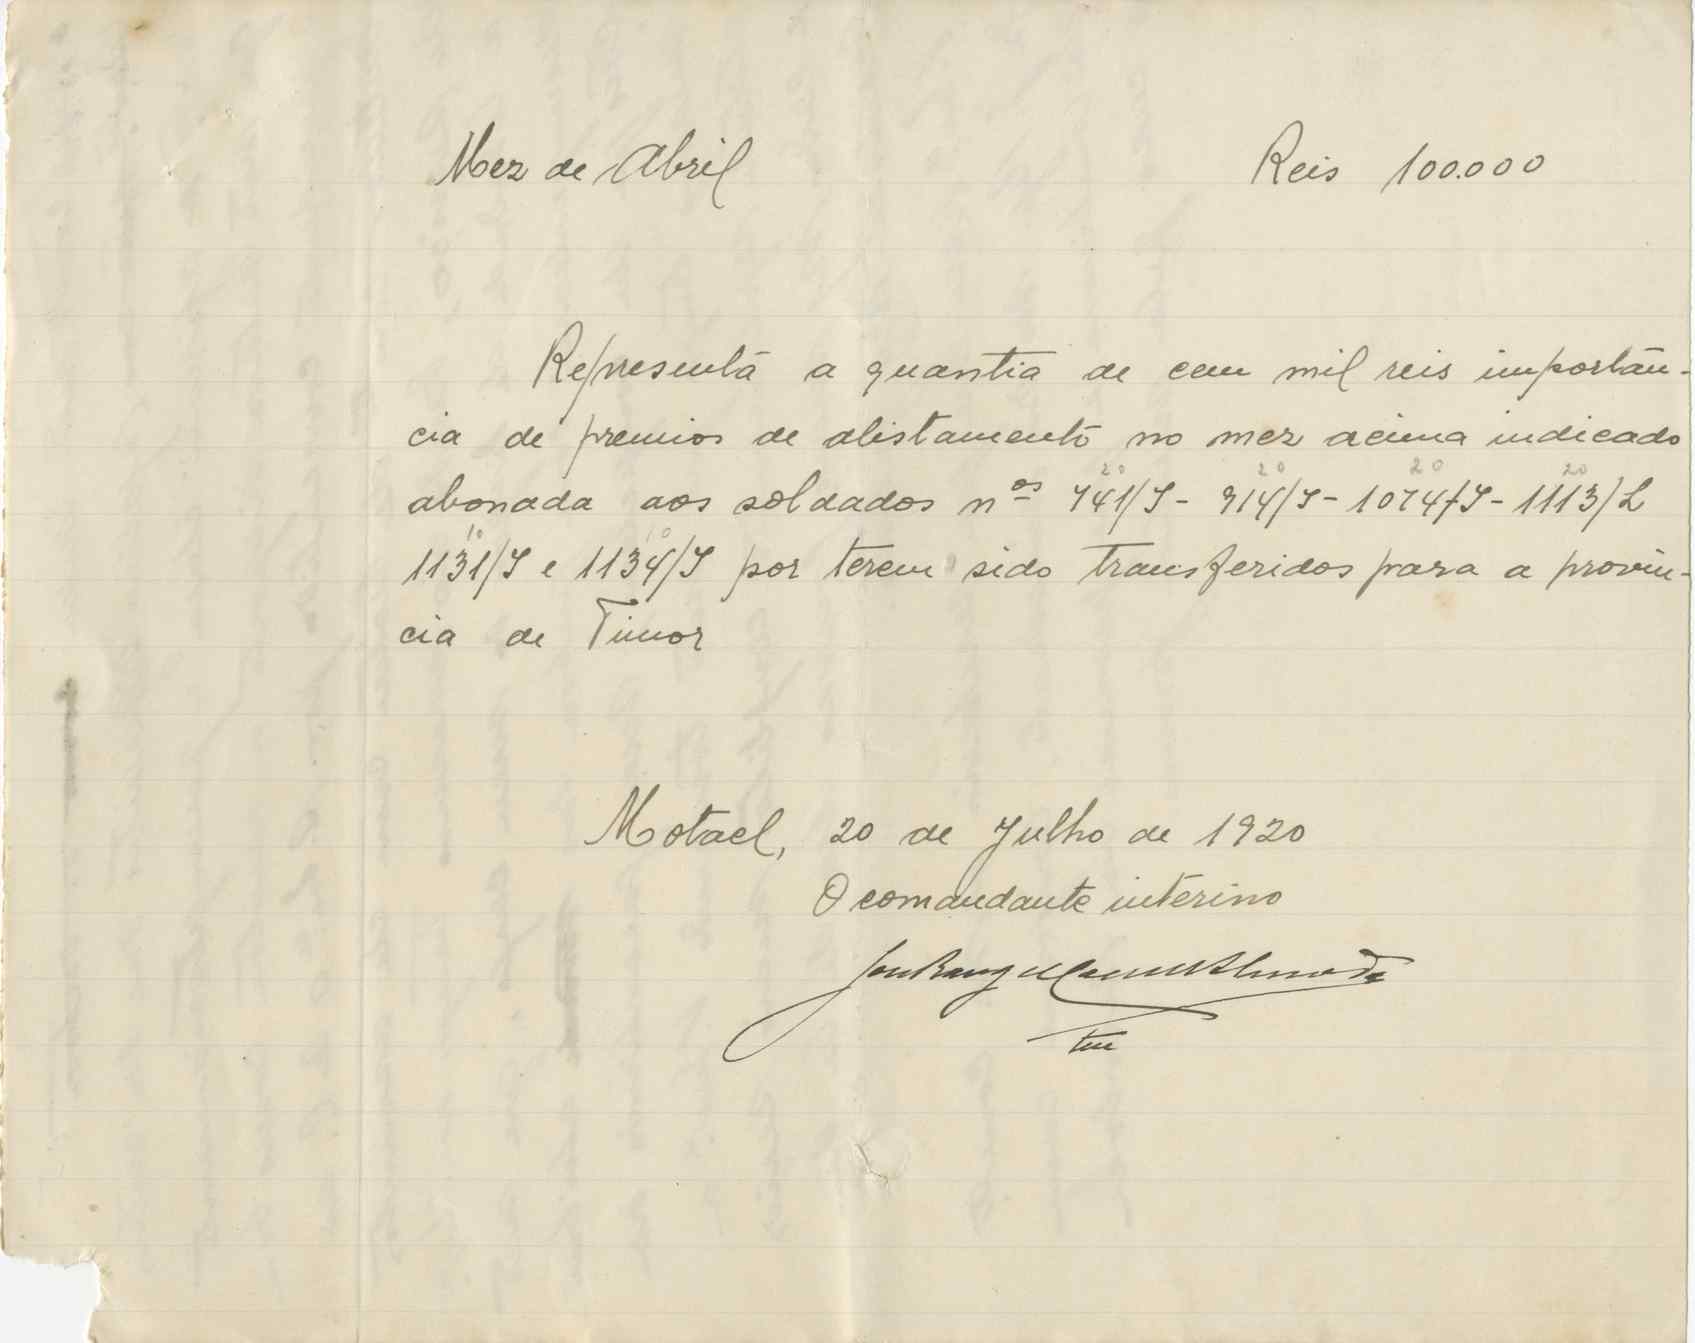 Mez de Abril Reis 100.000
Representa a quantia de cem mil reis importân-
cia de premios de alistamento no mez acima indicado
20 20 20 20
abonada aos soldados nos 741/I - 914/I - 1074/I - 1113/L
10 10
1131/I e 1134/I por terem sido transferidos para a provin-
cia de Timor
Motael, 20 de Julho de 1920
O comandante interino
Almeida
ten